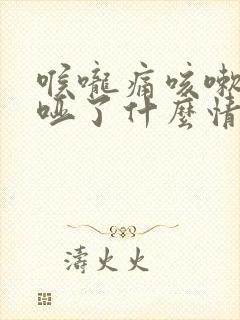 喉嚨痛咳嗽
啞了什麼情
濤火火